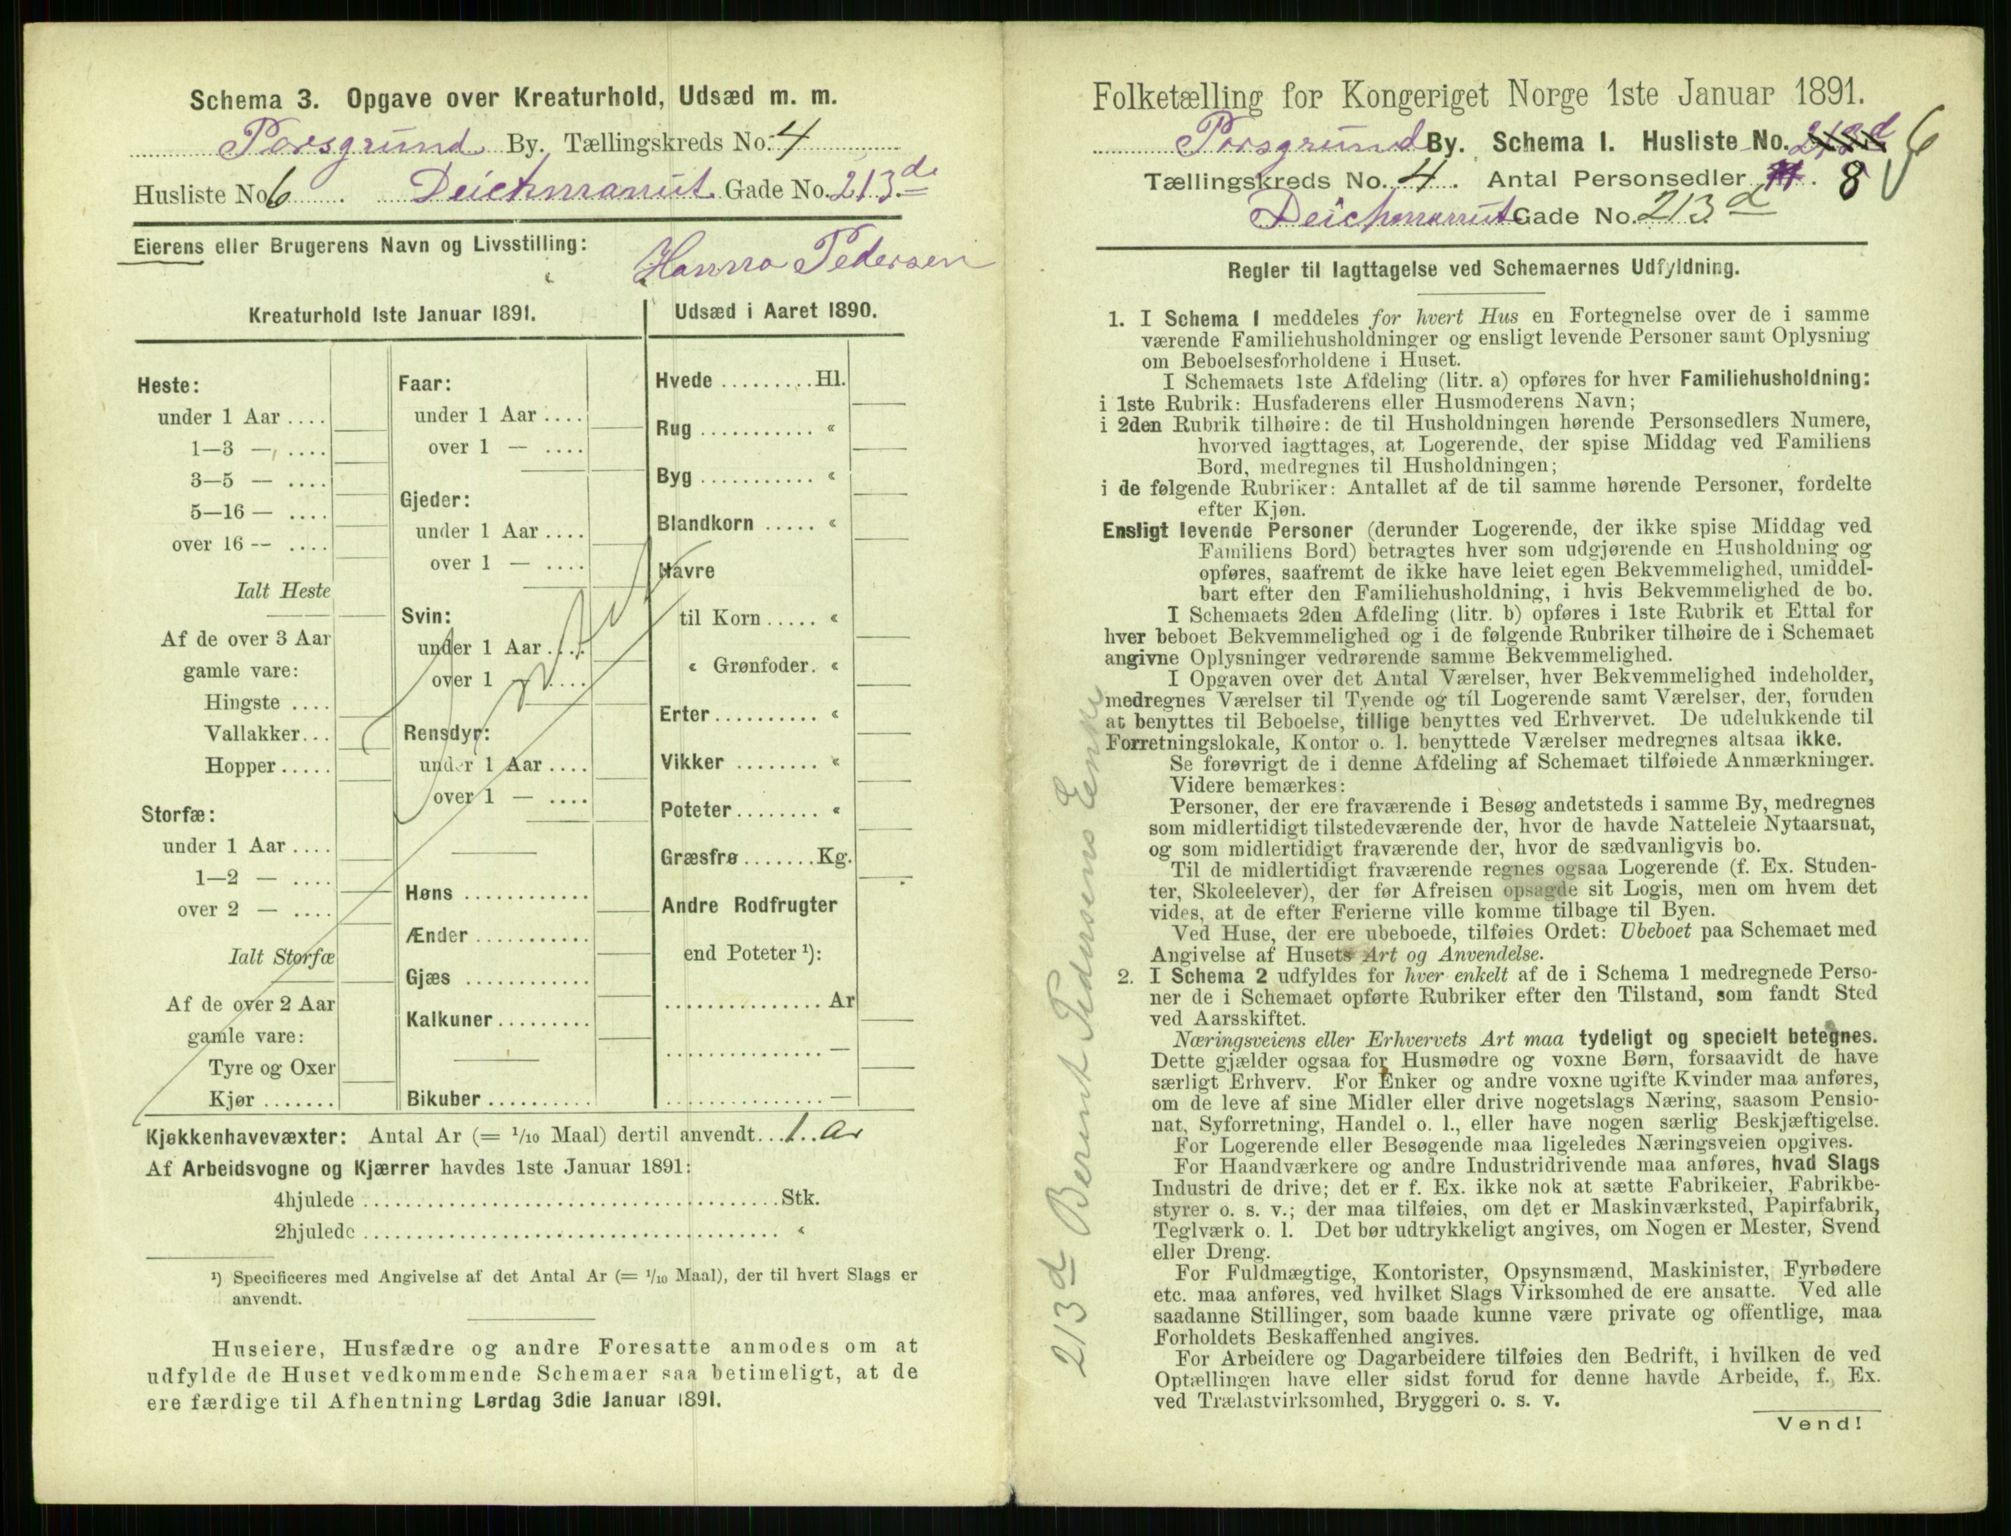 Schema 3. Opgave over Kreaturhold, Udsæd m. m.
Porsgrund By. Tællingskreds No. 4
Husliste No. 6 Deichmannut Gade No. 213 d.
Eierens eller Brugerens Navn og Livsstilling:
Hanna Pedersen
Kreaturhold 1ste Januar 1891.
Heste:
under 1 Aar....
1—3 — ....
3—5 — ....
5—16 — ....
over 16 — ....
Ialt Heste
Af de over 3 Aar
gamle vare:
Hingste ....
Vallakker...
Hopper.....
Storfæ:
under 1 Aar....
1—2 — ....
over 2 — ....
Ialt Storfæ
Af de over 2 Aar
gamle vare:
Tyre og Oxer
Kjør.......
Faar:
under 1 Aar....
over 1 — ....
Gjeder:
under 1 Aar....
over 1 — ....
Svin:
under 1 Aar....
over 1 — ....
Rensdyr:
under 1 Aar....
over 1 — ....
Høns............
Ænder...........
Gjæs ...........
Kalkuner.........
Bikuber..........
Udsæd i Aaret 1890.
Hvede.........Hl.
Rug........... «
Byg........... «
Blandkorn ..... «
Havre
til Korn..... «
« Grønfoder. «
Erter.......... «
Vikker ........ «
Poteter........ «
Græsfrø.......Kg.
Andre Rodfrugter
end Poteter ¹):
...............Ar
............... —
............... —
Kjøkkenhavevæxter: Antal Ar (= 1/10 Maal) dertil anvendt...1. Ar
Af Arbeidsvogne og Kjærrer havdes 1ste Januar 1891:
4hjulede.......................................Stk.
2hjulede....................................... «
¹) Specificeres med Angivelse af det Antal Ar (= 1/10 Maal), der til hvert Slags er
anvendt.
Huseiere, Husfædre og andre Foresatte anmodes om at
udfylde de Huset vedkommende Schemaer saa betimeligt, at de
ere færdige til Afhentning Lørdag 3die Januar 1891.
Folketælling for Kongeriget Norge 1ste Januar 1891.
Porsgrund By. Schema I. Husliste No. 213 d 6
Tællingskreds No. 4. Antal Personsedler 8
Deichmannut Gade No. 213 d
Regler til Iagttagelse ved Schemaernes Udfyldning.
1. I Schema I meddeles for hvert Hus en Fortegnelse over de i samme
værende Familiehusholdninger og ensligt levende Personer samt Oplysning
om Beboelsesforholdene i Huset.
I Schemaets 1ste Afdeling (litr. a) opføres for hver Familiehusholdning:
i 1ste Rubrik: Husfaderens eller Husmoderens Navn;
i 2den Rubrik tilhøire: de til Husholdningen hørende Personsedlers Numere,
hvorved iagttages, at Logerende, der spise Middag ved Familiens
Bord, medregnes til Husholdningen;
i de følgende Rubriker: Antallet af de til samme hørende Personer, fordelte
efter Kjøn.
Ensligt levende Personer (derunder Logerende, der ikke spise Middag ved
Familiens Bord) betragtes hver som udgjørende en Husholdning og
opføres, saafremt de ikke have leiet egen Bekvemmelighed, umiddel-
bart efter den Familiehusholdning, i hvis Bekvemmelighed de bo.
I Schemaets 2den Afdeling (litr. b) opføres i 1ste Rubrik et Ettal for
hver beboet Bekvemmelighed og i de følgende Rubriker tilhøire de i Schemaet
angivne Oplysninger vedrørende samme Bekvemmelighed.
I Opgaven over det Antal Værelser, hver Bekvemmelighed indeholder,
medregnes Værelser til Tyende og til Logerende samt Værelser, der, foruden
at benyttes til Beboelse, tillige benyttes ved Erhvervet. De udelukkende til
Forretningslokale, Kontor o. l. benyttede Værelser medregnes altsaa ikke.
Se forøvrigt de i denne Afdeling af Schemaet tilføiede Anmærkninger.
Videre bemærkes:
Personer, der ere fraværende i Besøg andetsteds i samme By, medregnes
som midlertidigt tilstedeværende der, hvor de havde Natteleie Nytaarsnat,
og som midlertidigt fraværende der, hvor de sædvanligvis bo.
Til de midlertidigt fraværende regnes ogsaa Logerende (f. Ex. Studen-
ter, Skoleelever), der før Afreisen opsagde sit Logis, men om hvem det
vides, at de efter Ferierne ville komme tilbage til Byen.
Ved Huse, der ere ubeboede, tilføies Ordet: Ubeboet paa Schemaet med
Angivelse af Husets Art og Anvendelse.
2. I Schema 2 udfyldes for hver enkelt af de i Schema 1 medregnede Perso-
ner de i Schemaet opførte Rubriker efter den Tilstand, som fandt Sted
ved Aarsskiftet.
Næringsveiens eller Erhvervets Art maa tydeligt og specielt betegnes.
Dette gjælder ogsaa for Husmødre og voxne Børn, forsaavidt de have
særligt Erhverv. For Enker og andre voxne ugifte Kvinder maa anføres,
om de leve af sine Midler eller drive nogetslags Næring, saasom Pensio-
nat, Syforretning, Handel o. l., eller have nogen særlig Beskjæftigelse.
For Logerende eller Besøgende maa ligeledes Næringsveien opgives.
For Haandværkere og andre Industridrivende maa anføres, hvad Slags
Industri de drive; det er f. Ex. ikke nok at sætte Fabrikeier, Fabrikbe-
styrer o. s. v.; der maa tilføies, om det er Maskinværksted, Papirfabrik,
Teglværk o. l. Det bør udtrykkeligt angives, om Nogen er Mester, Svend
eller Dreng.
For Fuldmægtige, Kontorister, Opsynsmænd, Maskinister, Fyrbødere
etc. maa anføres, ved hvilket Slags Virksomhed de ere ansatte. Ved alle
saadanne Stillinger, som baade kunne være private og offentlige, maa
Forholdets Beskaffenhed angives.
For Arbeidere og Dagarbeidere tilføies den Bedrift, i hvilken de ved
Optællingen have eller sidst forud for denne havde Arbeide, f. Ex.
ved Trælastvirksomhed, Bryggeri o. s. v.
Vend!
213 d Berent Pedersens Enke